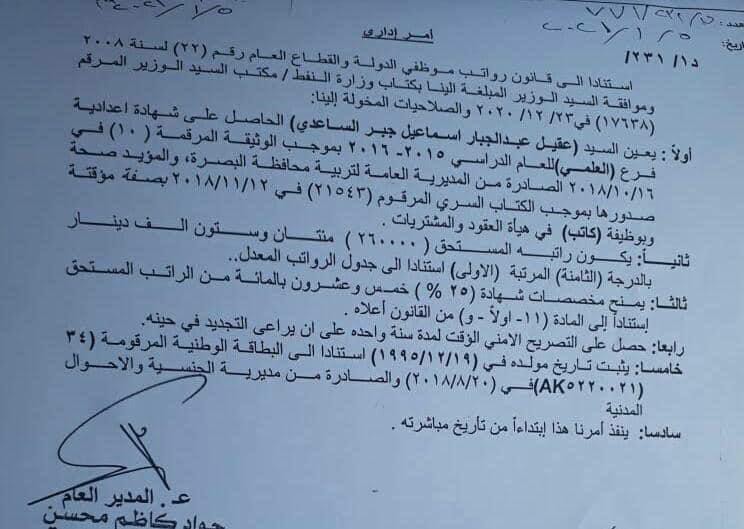 أمر إداري
د١/ ٢٣١/
استنادا الى قانون رواتب موظفي الدولة والقطاع العام رقم (٢٢) لسنة ٢٠٠٨
وموافقة السيد الوزير المبلغة الينا بكتاب وزارة النفط / مكتب السيد الوزير المرقم
(١٧٦٣٨) في ٢٣/ ١٢/ ٢٠٢٠ والصلاحيات المخولة إلينا:
أولاً : يعين السيد (عقيل عبدالجبار اسماعيل جبر الساعدي) الحاصل على شهادة اعدادية
فرع (العلمي) للعام الدراسي ٢٠١٥- ٢٠١٦ بموجب الوثيقة المرقمة (١٠) في
٢٠١٨/١٠/١٦ الصادرة من المديرية العامة لتربية محافظة البصرة، والمؤيد صحة
صدورها بموجب الكتاب السري المرقوم (٢١٥٤٣) في ٢٠١٨/١١/١٢ بصفة مؤقتة
وبوظيفة (كاتب) في هيأة العقود والمشتريات .
ثانياً: يكون راتبه المستحق (٢٦٠٠٠٠) منتان وستون الف دينار
بالدرجة (الثامنة) المرتبة (الاولى) استنادا الى جدول الرواتب المعدل..
ثالثا: يمنح مخصصات شهادة (٢٥ %) خمس وعشرون بالمائة من الراتب المستحق
إستناداً إلى المادة (١١- اولاً - و) من القانون أعلاه .
رابعا: حصل على التصريح الامني الزقت لمدة سنة واحده على ان يراعى التجديد في حينه.
خامسا: يثبت تاريخ مولده في (١٩٩٥/١٢/١٩) استنادا الى البطاقة الوطنية المرقومة (٣٤
AK٥٢٢٠٠٢١) في (٢٠١٨/٨/٢٠) والصادرة من مديرية الجنسية والاحوال
المدنية
سادسا: ينفذ أمرنا هذا إبتداءاً من تأريخ مباشرته .
ع. المدير العام
جواد كاظم محسن